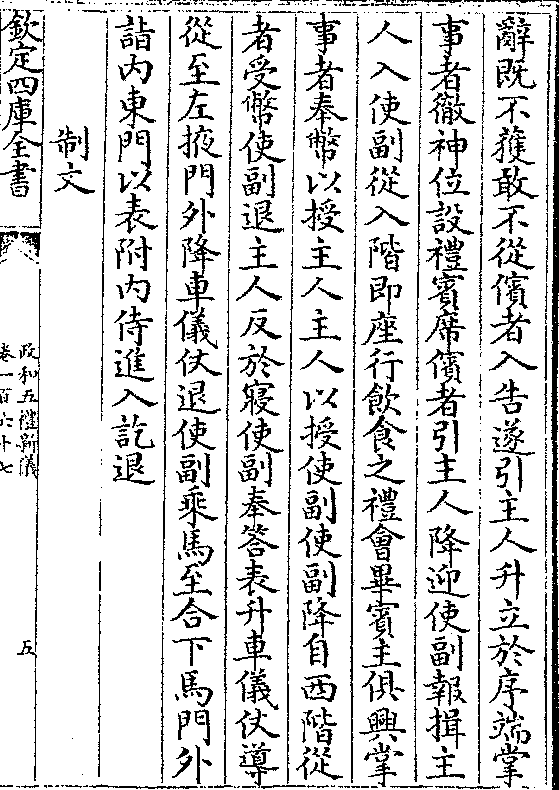 辭既不獲敢不從儐者入告遂引主人升立於序端掌
事者徹神位設禮賓席儐者引主人降迎使副報揖主
人入使副從入階即座行飲食之禮會畢賓主俱興掌
事者奉幣以授主人主人以授使副使副降自西階從
者受幣使副退主人反於寢使副奉答表升車儀仗導
從至左掖門外降車儀仗退使副乘馬至合下馬門外
詣内東門以表附内侍進入訖退
制文
欽定四庫全書
政和五禮新儀
卷一百六十七
五